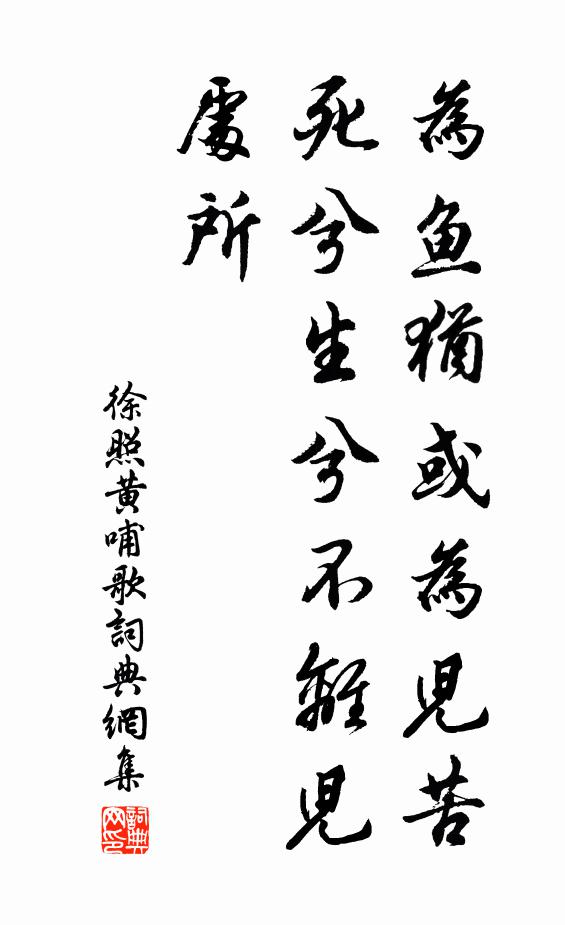 為魚猶或為児苦
死兮生兮不離児
處所
徐照黃哺歌詞典網集
詞典
网印